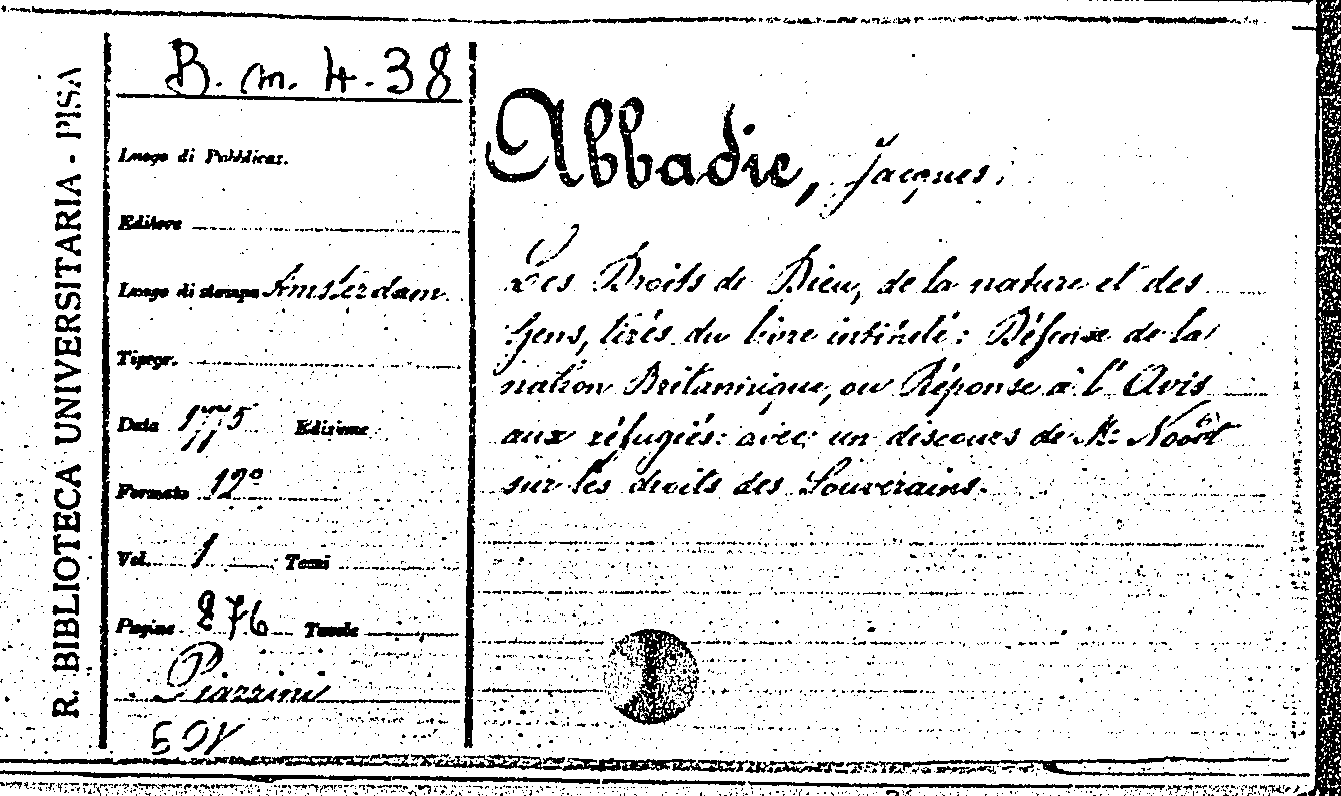 R. BIBLIOTECA UNIVERSITARIA - PISA
B. m. 4. 38
Luogo di Pubblicaz.
Editore
Luogo di stampa Amsterdam
Tipogr.
Data 1775 Edizione
Formato 12°
Vol. 1 Tomi
Pagine 276 Tavole
Piazzini
Abbadie, Jacques.
Les Droits de Dieu, de la nature et des
gens, tirés du livre intitulé: Défense de la
nation Britannique, ou Réponse à l'Avis
aux réfugiés: avec un discours de Mr Noodt
sur les droits des Souverains.